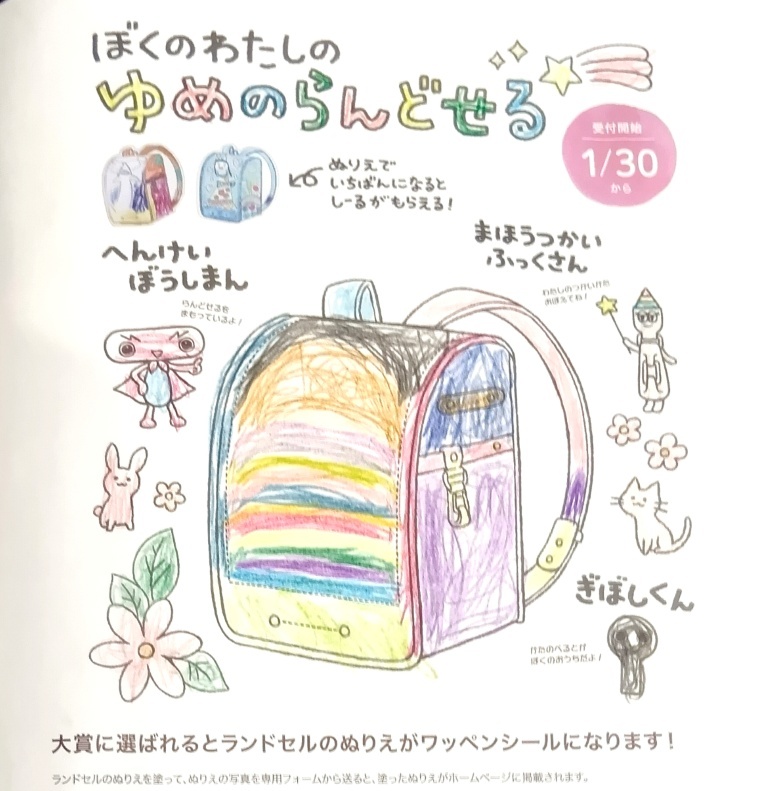 ぼくのわたしの
ゆめのらんどせる
受付開始
1/30
から
ぬりえで
いちばんになると
しーるがもらえる!
へんけい
ぼうしまん
らんどせるを
まもっているよ!
まほうつかい
ふっくさん
わたしのつかいかた
おぼえてね!
ぎぼしくん
かたのべるとが
ぼくのおうちだよ!
大賞に選ばれるとランドセルのぬりえがワッペンシールになります!
ランドセルのぬりえを塗って、ぬりえの写真を専用フォームから送ると、塗ったぬりえがホームページに掲載されます。